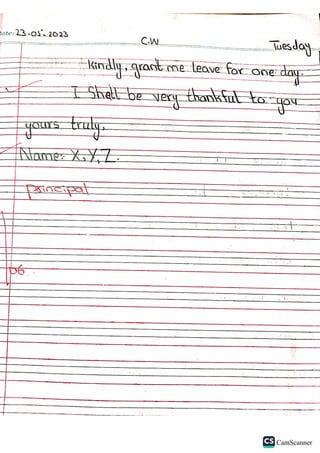 Date: 23-05-2023
C.W
Tuesday
kindly, grant me leave for one day.
I Shall be very thankful to you
yours truly,
Name: X,Y,Z.
principal
06
CS CamScanner